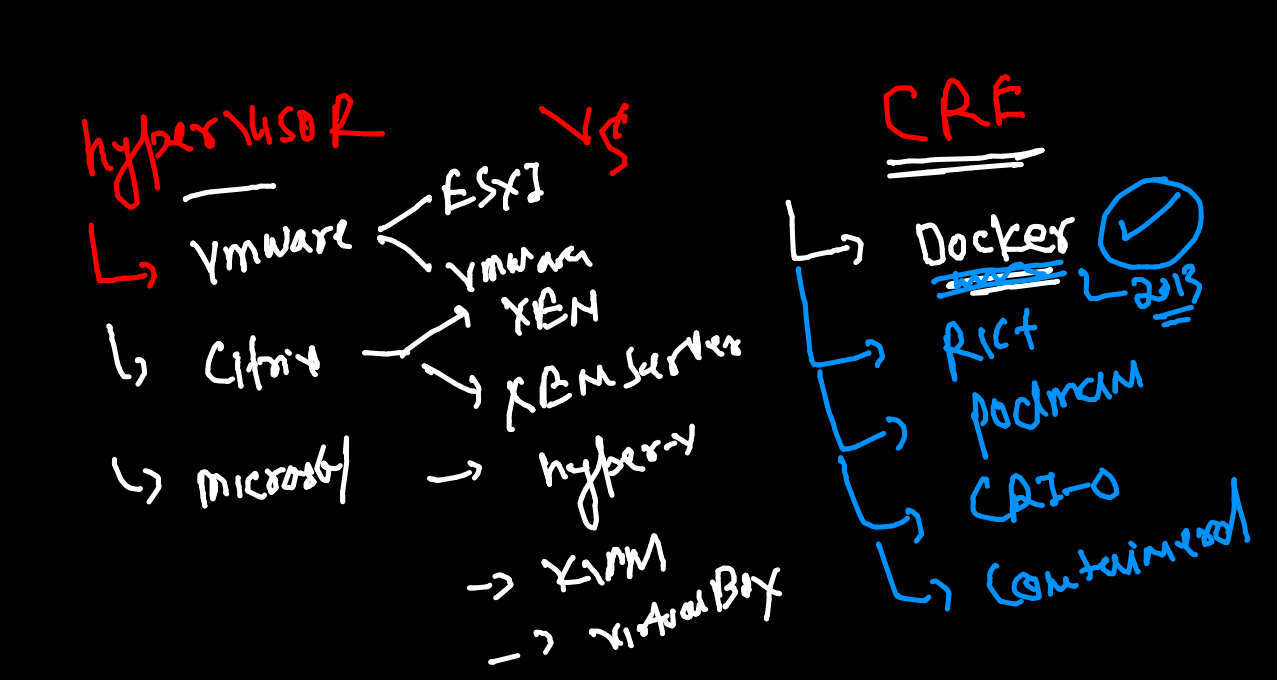 hypervisor vs CRE
vmware
ESXI
vmware
Citrix
XEN
XEN Server
microsoft
hyper-v
KVM
virtualBox
Docker
2013
Rkt
podman
CRI-O
Containerd